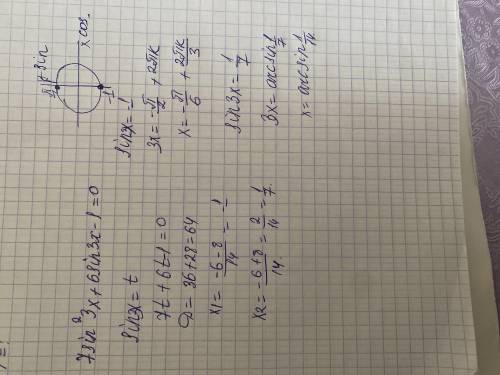 7sin²3x+6sin3x-1=0
sin3x=t
7t+6t-1=0
D=36+28=64
x1=(-6-8)/14=-1
x2=(-6+8)/14=2/14=1/7.
sin
x cos
-1
sin3x=-1
3x=-π/2+2πk
x=-π/6+2πk/3
sin3x=1/7
3x=arcsin1/7
x=arcsin1/14